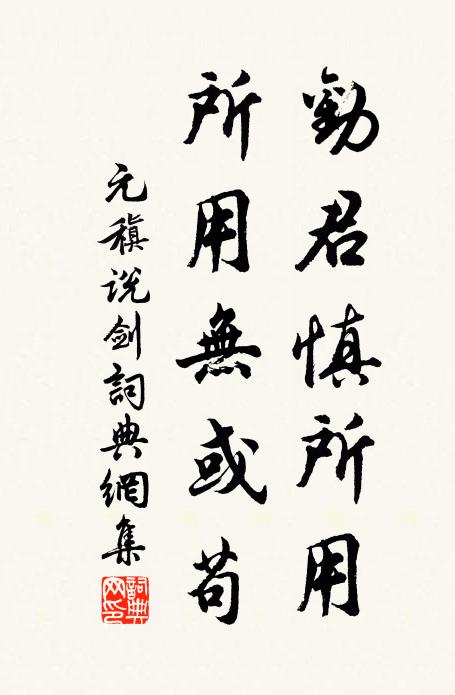 勸君慎所用
所用無或苟
元稹说剑詞典網集
詞典網印